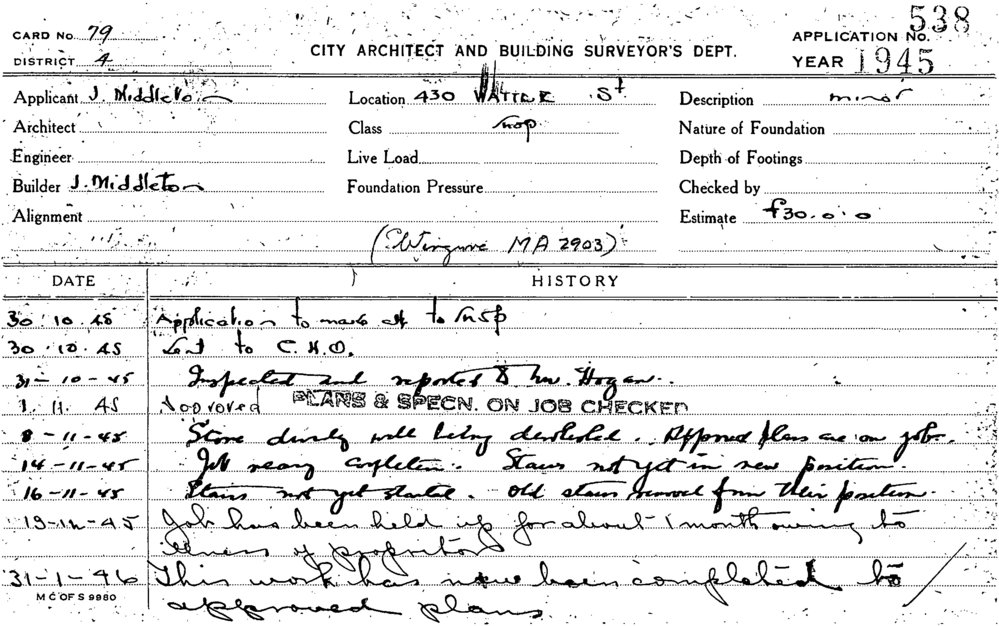 CARD No. 79
DISTRICT 4
CITY ARCHITECT AND BUILDING SURVEYOR'S DEPT.
APPLICATION No. 538
YEAR 1945
Applicant J. Middleton Location 430 WATTLE St Description minor
Architect Class Shop Nature of Foundation
Engineer Live Load Depth of Footings
Builder J. Middleton Foundation Pressure Checked by
Alignment Estimate £30.0.0
MA 2903)
DATE HISTORY
30.10.45 Application to to Insp
30.10.45 Sent to C.H.O.
31-10-45 Inspected and reported to Mr. Hogan.
1.11.45 Approved PLANS & SPECN. ON JOB CHECKED
8-11-45 Stone wall being demolished. Approved plans are on job.
14-11-45 Job nearing completion. Stairs not yet in new position.
16-11-45 Stairs not yet started. Old stairs removed from their position.
19-12-45 Job has been held up for about 1 month owing to
illness of proprietor
31-1-46 This work has now been completed to
approved plans.
M C OF S 9980